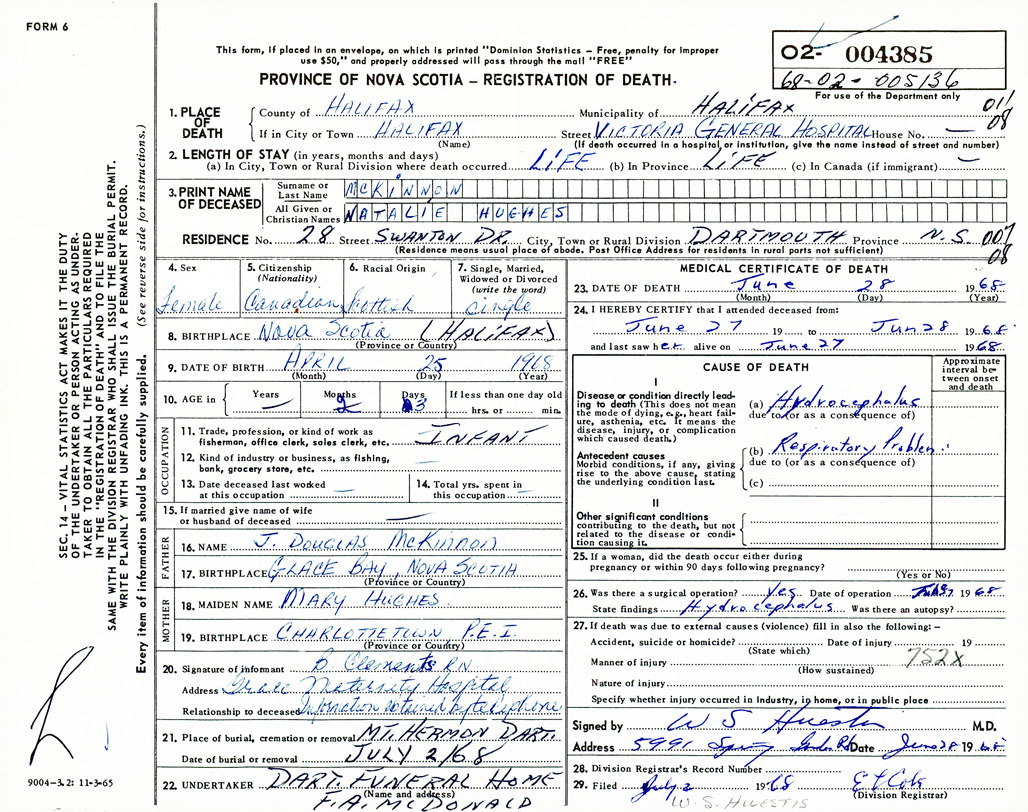 FORM 6
This form, if placed in an envelope, on which is printed "Dominion Statistics – Free, penalty for improper
use $50," and properly addressed will pass through the mail "FREE"
PROVINCE OF NOVA SCOTIA – REGISTRATION OF DEATH.
02- 004385
68-02-005136
For use of the Department only
1. PLACE OF DEATH
County of HALIFAX Municipality of HALIFAX 011
If in City or Town HALIFAX Street VICTORIA GENERAL HOSPITAL House No. — 08
(Name) (If death occurred in a hospital or institution, give the name instead of street and number)
2. LENGTH OF STAY (in years, months and days)
(a) In City, Town or Rural Division where death occurred LIFE (b) In Province LIFE (c) In Canada (if immigrant) —
3. PRINT NAME OF DECEASED
Surname or Last Name MCKINNON
All Given or Christian Names NATALIE HUGHES
RESIDENCE No. 28 Street SWANTON DR. City, Town or Rural Division DARTMOUTH Province N.S. 007
(Residence means usual place of abode. Post Office Address for residents in rural parts not sufficient) 08
4. Sex Female
5. Citizenship (Nationality) Canadian
6. Racial Origin Scottish
7. Single, Married, Widowed or Divorced (write the word) single
8. BIRTHPLACE Nova Scotia (HALIFAX)
(Province or Country)
9. DATE OF BIRTH APRIL 25 1968
(Month) (Day) (Year)
10. AGE in Years — Months 2 Days 3 If less than one day old
hrs. or min.
OCCUPATION
11. Trade, profession, or kind of work as
fisherman, office clerk, sales clerk, etc. INFANT
12. Kind of industry or business, as fishing,
bank, grocery store, etc. —
13. Date deceased last worked
at this occupation —
14. Total yrs. spent in
this occupation —
15. If married give name of wife
or husband of deceased —
FATHER
16. NAME J. DOUGLAS McKINNON
17. BIRTHPLACE GLACE BAY, NOVA SCOTIA
(Province or Country)
MOTHER
18. MAIDEN NAME MARY HUGHES
19. BIRTHPLACE CHARLOTTETOWN, P.E.I.
(Province or Country)
20. Signature of informant B Clements RN
Address Grace Maternity Hospital
Relationship to deceased Information obtained by telephone
21. Place of burial, cremation or removal MT. HERMON DART.
Date of burial or removal JULY 2/68
22. UNDERTAKER DART. FUNERAL HOME
(Name and address)
F.A. McDONALD
MEDICAL CERTIFICATE OF DEATH
23. DATE OF DEATH June 28 1968
(Month) (Day) (Year)
24. I HEREBY CERTIFY that I attended deceased from:
June 27 19 to Jun 28 1968
and last saw her alive on June 27 1968
CAUSE OF DEATH
Approximate interval between onset and death
I
Disease or condition directly leading to death (This does not mean the mode of dying, e.g., heart failure, asthenia, etc. It means the disease, injury, or complication which caused death.)
(a) Hydrocephalus
due to (or as a consequence of)
Antecedent causes
Morbid conditions, if any, giving rise to the above cause, stating the underlying condition last.
(b) Respiratory Problem.
due to (or as a consequence of)
(c)
II
Other significant conditions
contributing to the death, but not related to the disease or condition causing it.
25. If a woman, did the death occur either during
pregnancy or within 90 days following pregnancy?
(Yes or No)
26. Was there a surgical operation? Yes Date of operation 1968
State findings Hydrocephalus Was there an autopsy?
27. If death was due to external causes (violence) fill in also the following:–
Accident, suicide or homicide? Date of injury 19
(State which)
752X
Manner of injury
(How sustained)
Nature of injury
Specify whether injury occurred in Industry, in home, or in public place
Signed by W S Huestis M.D.
Address 5991 Spring Garden Rd Date June 28 1968
28. Division Registrar's Record Number
29. Filed July 2 1968
(Division Registrar)
W.S. HUESTIS
SEC. 14 – VITAL STATISTICS ACT MAKES IT THE DUTY
OF THE UNDERTAKER OR PERSON ACTING AS UNDER-
TAKER TO OBTAIN ALL THE PARTICULARS REQUIRED
IN THE "REGISTRATION OF DEATH" AND TO FILE THE
SAME WITH THE DIVISION REGISTRAR WHO SHALL ISSUE THE BURIAL PERMIT.
WRITE PLAINLY WITH UNFADING INK. THIS IS A PERMANENT RECORD.
Every item of information should be carefully supplied. (See reverse side for instructions.)
9004-3.2: 11-3-65